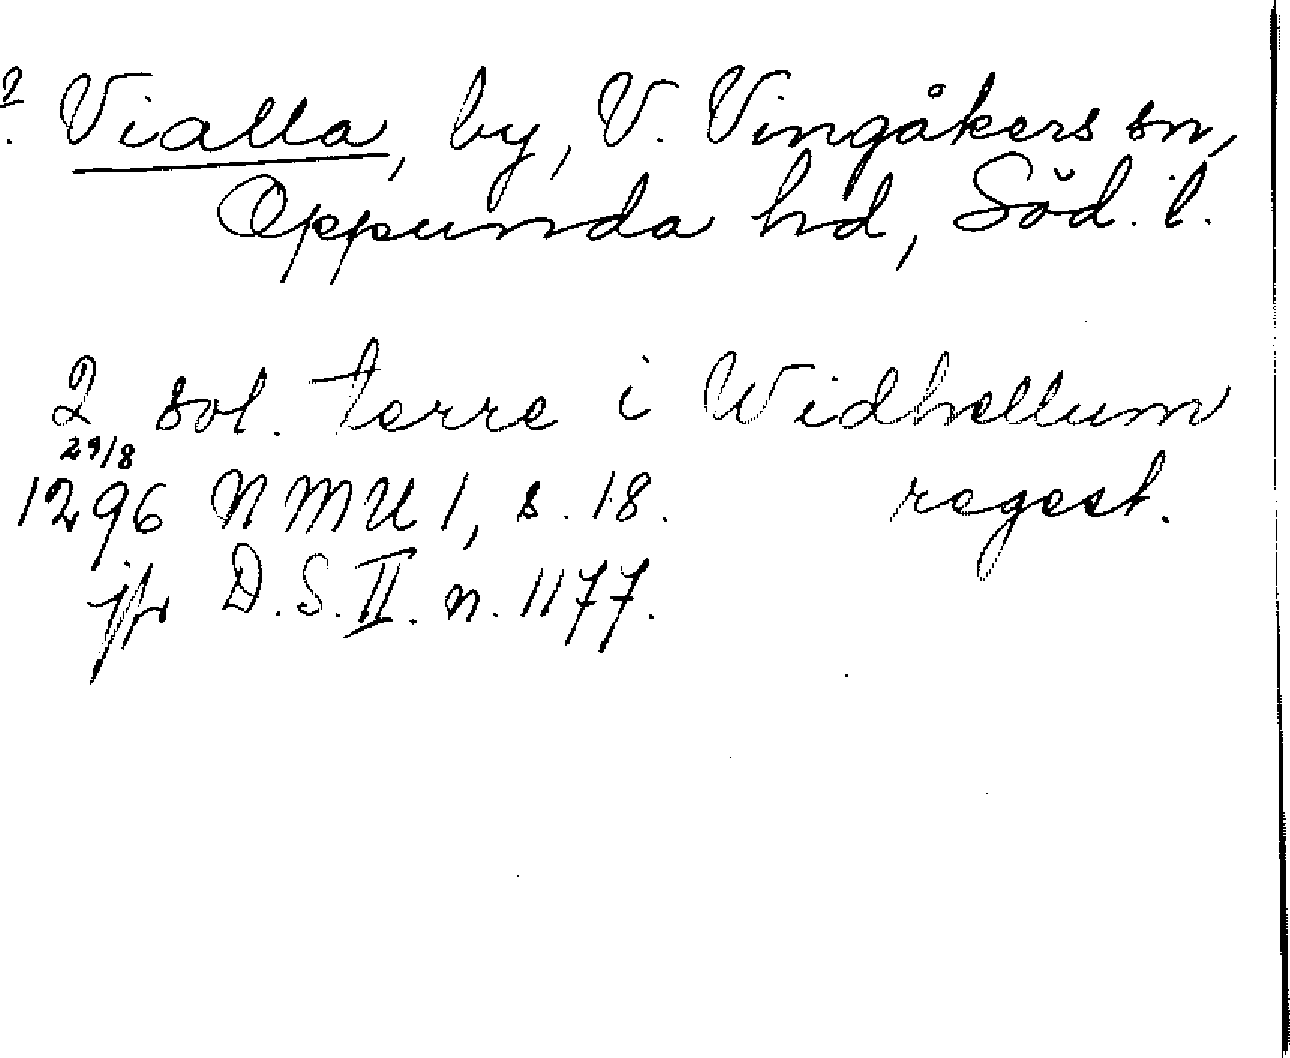 ? Vialla, by, V. Vingåkers sn,
Oppunda hd, Söd. l.
2 sol. terre i Widhellum
29/8
1296 NMU 1, s. 18. regest.
jfr D.S. II. n. 1177.